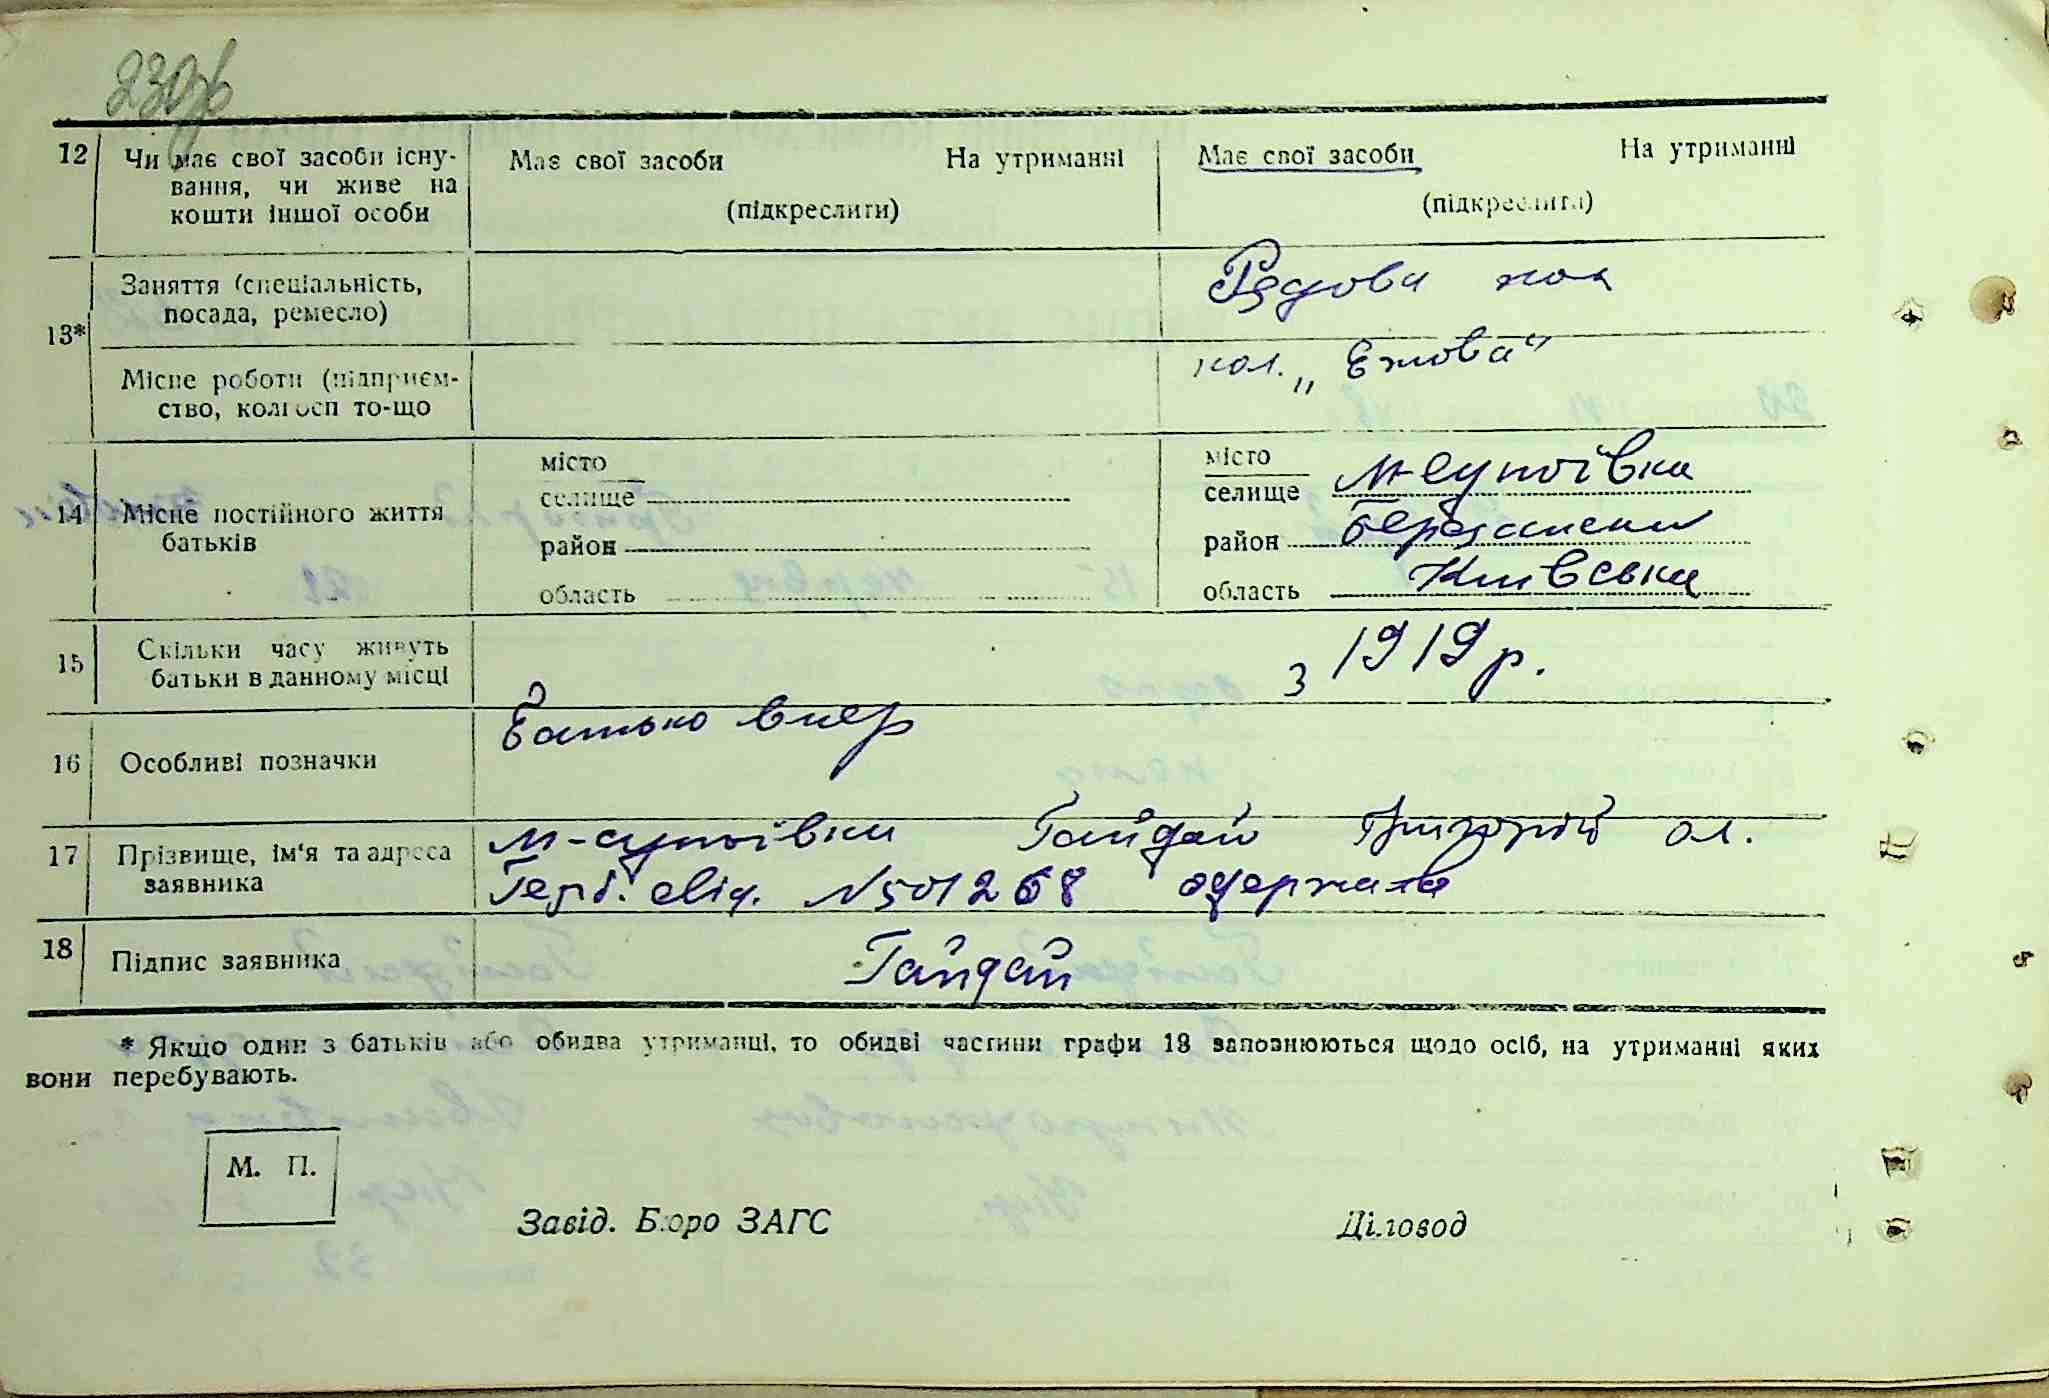 230зв
12 Чи має свої засоби існу- Має свої засоби На утриманні Має свої засоби На утриманні
вання, чи живе на
кошти іншої особи (підкреслити) (підкреслити)
13* Заняття (спеціальність, Рядова кол
посада, ремесло)
Місце роботи (підприєм- кол. „Ежова"
ство, колгосп то-що
14 Місце постійного життя батьків
місто місто
селище селище М-Супоївка
район район Березански
область область Київська
15 Скільки часу живуть з 1919 р.
батьки в данному місці
16 Особливі позначки Батько вмер
17 Прізвище, ім'я та адреса М-супоївки Гайдай Григорій ол.
заявника Герб. свід. N501268 одержала
18 Підпис заявника Гайдай
* Якщо один з батьків або обидва утриманці, то обидві частини графи 13 заповнюються щодо осіб, на утриманні яких
вони перебувають.
М. П.
Завід. Бюро ЗАГС Діловод